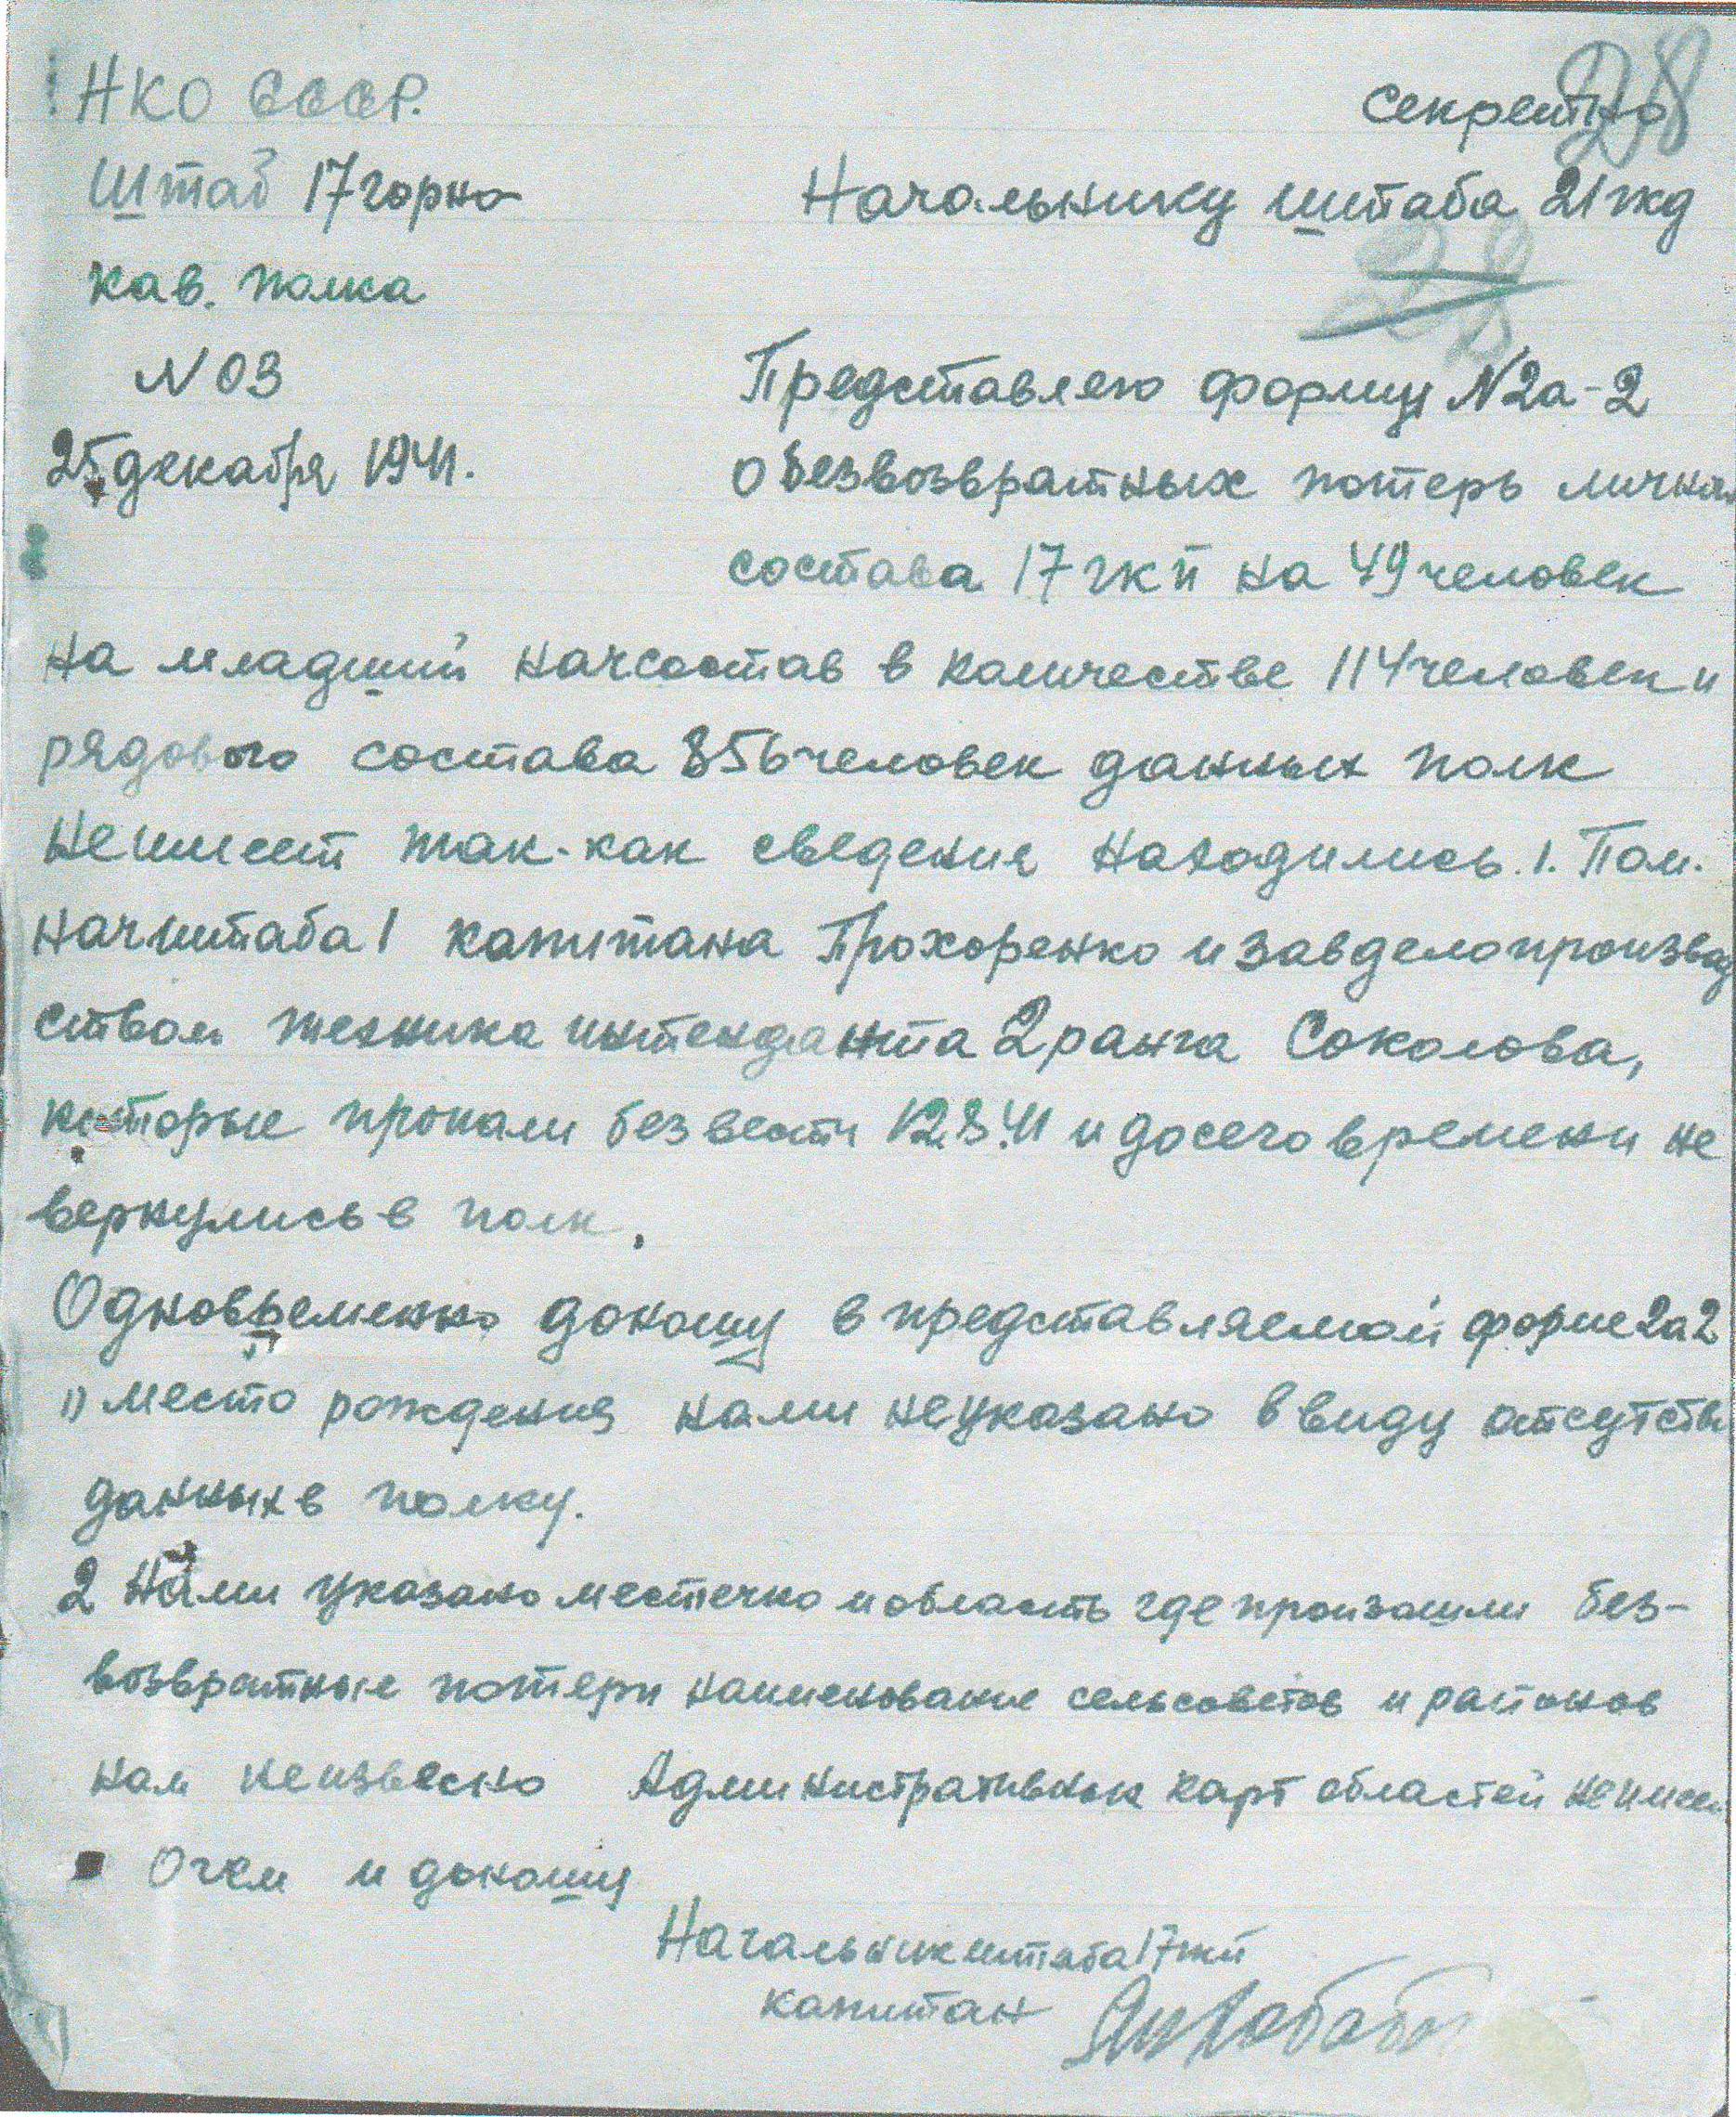 НКО СССР.
Секретно
28
Штаб 17 горно
Начальнику штаба 21 гкд
кав. полка
28
N 03
Представляю форму N2а-2
25 декабря 1941.
о безвозвратных потерь личн
состава 17 гкп на 49 человек
на младший начсостав в количестве 114 человек и
рядового состава 856 человек данных полк
неимеет так-как сведения находились. 1. Пом.
начштаба 1 капитана Прохоренко и завделопроизвод
ством техника интенданта 2 ранга Соколова,
которые пропали безвести 12.8.41 и досеговремени не
вернулись в полк.
Одновременно доношу в представляемой форме 2а2
1) место рождения нами неуказано ввиду отсутств
данных в полку.
2 Нами указано местечко и область где произошли без-
возвратные потери наименование сельсоветов и районов
нам неизвесно Административных карт областей неимеем
Очем и доношу
Начальник штаба 17 гкп
капитан